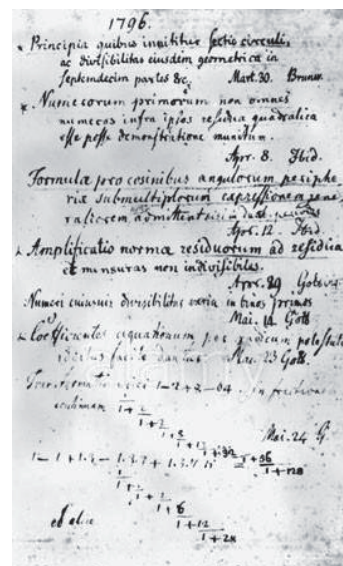 1796.
* Principia quibus innititur sectio circuli,
ac divisibilitas eiusdem geometrica in
septemdecim partes &c. Mart. 30. Brunsv.
* Numerorum primorum non omnes
numeros infra ipsos residua quadratica
esse posse demonstratione munitum.
Apr. 8. Ibid.
Formulae pro cosinibus angulorum periphe
riae submultiplorum expressionem gene
raliorem admittent nisi in duab. periodis
Apr. 12. Ibid.
* Amplificatio normae residuorum ad residua
et mensuras non indivisibiles.
Apr. 29 Gotting
Numeri cuiusvis divisibilitas varia in binos primos
Mai. 14 Gott
* Coefficientes aequationum per radicum potestat
additas facile dantur. Mai. 23 Gott.
Transformatio seriei 1-2+8-64 in fractionem
continuam 1
1+2
1+2
1+8
1+12
1+32
Mai. 24 G
1+56
1+128
1-1+1.3-1.3.7+1.3.7.15 =
1
1+2
1+
1+6
1+12
1+28
et aliae